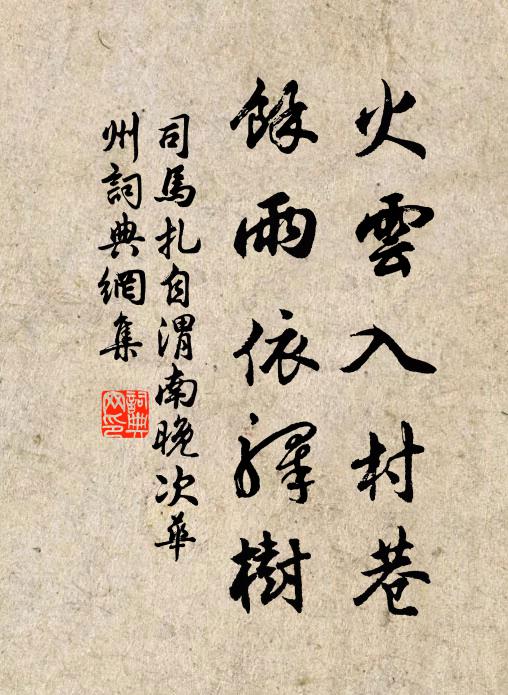 火雲入村巷
餘雨依驛樹
司馬扎自渭南晚次華
州詞典網集
詞典
网印